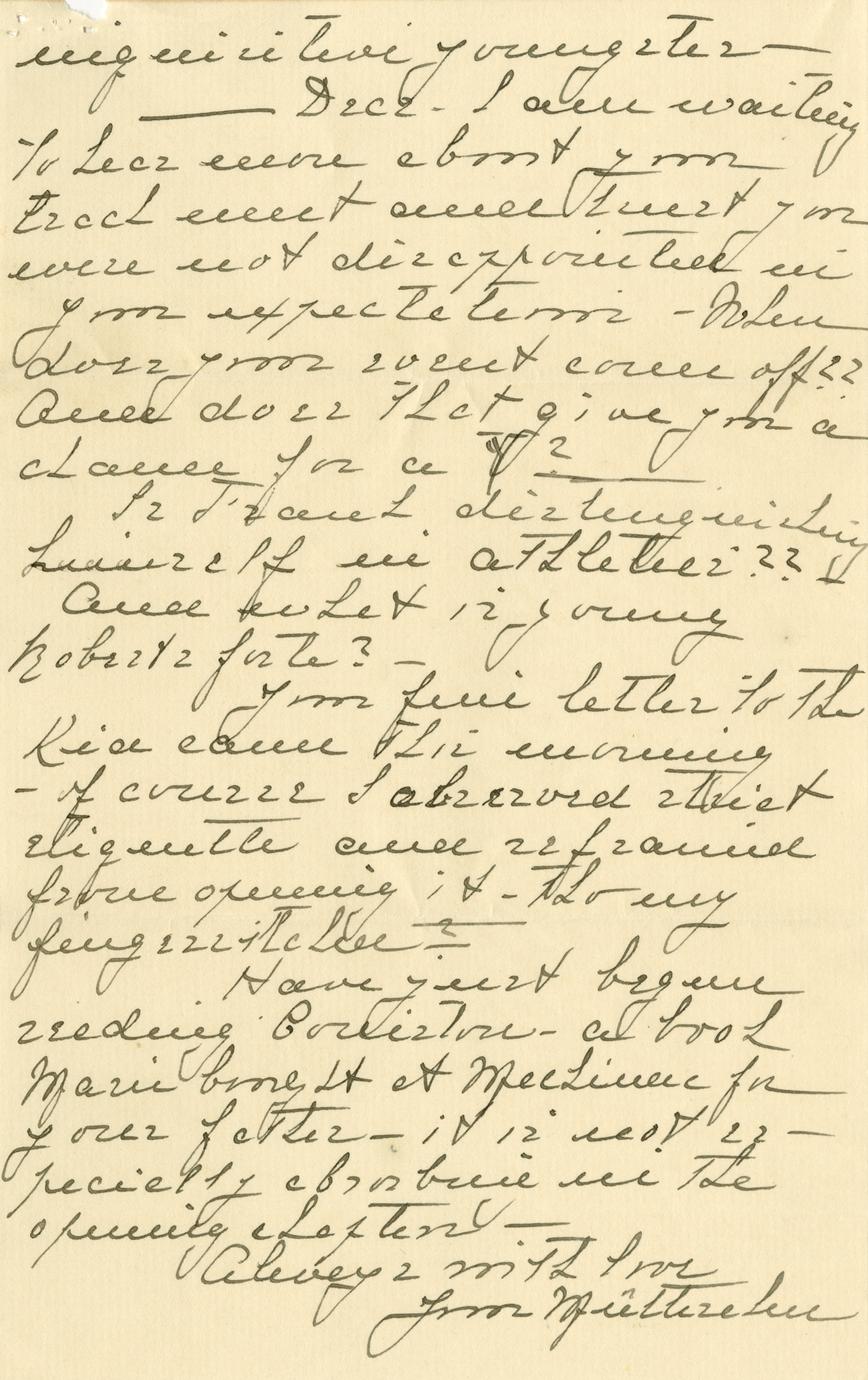 inquisitive youngster —
— Dear - I am waiting
to hear more about your
treatment and trust you
were not disappointed in
your expectations - When
does your event come off??
And does that give you a
chance for a Y?
Is Frank distinguishing
himself in athletics??
And what is young
Roberts forte? -
Your fine letter to the
Kid came this morning
- of course I observed strict
etiquette and refrained
from opening it - tho my
fingers itched
Have just begun
reading Coniston - a book
Marie bought at Mackinac for
your father - it is not es-
pecially absorbing in the
opening chapters -
Always with love
Your Mütterchen